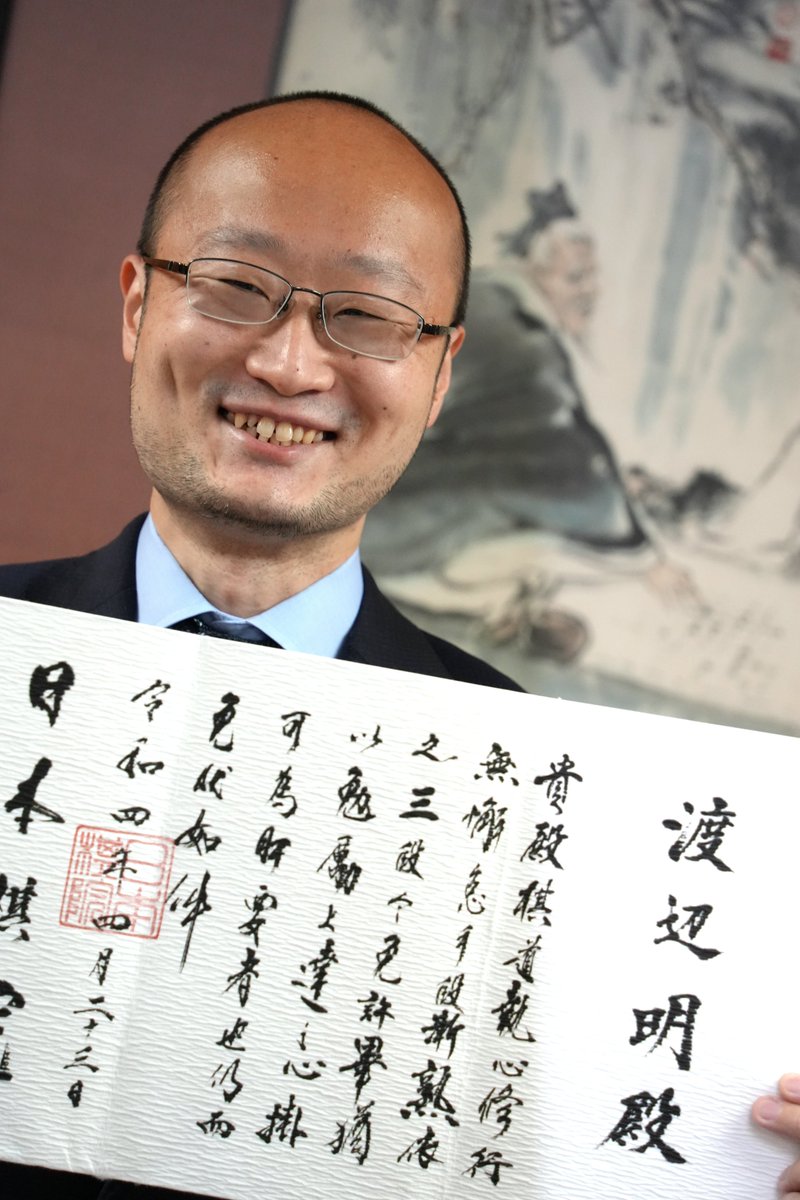 渡辺明殿
貴殿棋道執心修行
無懈怠手段漸熟依
之三段令免許畢猶
以勉勵上達之心掛
可為肝要者也仍而
免状如件
令和四年四月二十三日
日本棋院
日本棋院